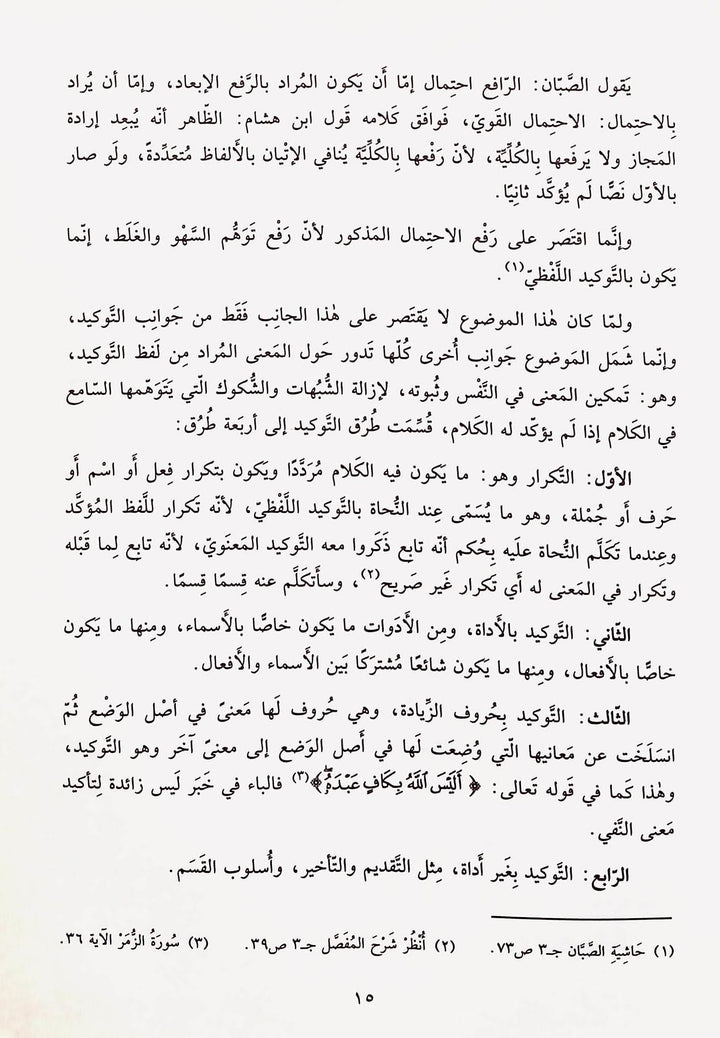 يَقول الصَّبّان: الرّافع احتِمال إمّا أَن يَكون المُراد بالرَّفع الإبعاد، وإمّا أن يُراد
بِالاحتِمال: الاحتِمال القَويّ، فَوافَق كَلامه قَول ابن هشام: الظّاهر أنّه يُبعِد إرادة
المَجاز ولا يَرفَعها بِالكُلِّيَّة، لأنّ رَفْعها بِالكُلِّيَّة يُنافي الإتْيان بِالأَلفاظ مُتعَدِّدةً، ولَو صار
بالأوّل نَصًّا لَم يُؤكَّد ثانِيًا.
وإنَّما اقتَصَر على رَفْع الاحتِمال المَذكور لأنّ رَفْع تَوَهُّم السَّهْو والغَلَط، إنّما
يَكون بالتَّوكيد اللَّفْظيّ(١).
ولمّا كان هٰذا الموضوع لا يَقتَصر على هٰذا الجانِب فَقَط من جَوانِب التَّوكيد،
وإنّما شَمَل المَوضوع جَوانِب أُخرى كُلّها تَدور حَول المَعنى المُراد مِن لَفظ التَّوكيد،
وهو: تَمكين المَعنى في النَّفْس وثُبوته، لإزالة الشُّبُهات والشُّكوك الّتي يَتَوَهّمها السّامع
في الكَلام إذا لَم يؤكّد له الكَلام، قُسِّمَت طُرُق التَّوكيد إلى أربَعة طُرُق:
الأوّل: التَّكرار وهو: ما يَكون فيه الكَلام مُرَدَّدًا ويَكون بتكرار فِعل أَو اسْم أَو
حَرف أَو جُمْلة، وهو ما يُسَمّى عِند النُّحاة بالتَّوكيد اللَّفْظيّ، لأنّه تَكرار للَّفظ المُؤكَّد
وعِندما تَكَلَّم النُّحاة علَيه بِحُكم أنّه تابِع ذَكَروا معه التَّوكيد المَعنَويّ، لأنّه تابِع لِما قَبْله
وتَكرار في المَعنى له أَي تَكرار غَير صَريح(٢)، وسأتكَلَّم عنه قِسمًا قِسمًا.
الثّاني: التَّوكيد بالأَداة، ومِن الأَدَوات ما يَكون خاصًّا بالأَسماء، ومِنها ما يَكون
خاصًّا بالأَفعال، ومِنها ما يَكون شائعًا مُشتَرَكًا بَين الأَسماء والأَفعال.
الثّالث: التَّوكيد بِحُروف الزِّيادة، وهي حُروف لَها مَعنىً في أصْل الوَضْع ثُمّ
انسَلَخَت عن مَعانيها الّتي وُضِعَت لَها في أَصل الوَضع إلى معنىً آخَر وهو التَّوكيد،
وهٰذا كَما في قَوله تَعالى: ﴿أَلَيْسَ ٱللَّهُ بِكَافٍ عَبْدَهُۥۖ﴾(٣) فالباء في خَبَر لَيس زائدة لِتأكيد
مَعنى النَّفي.
الرّابع: التَّوكيد بِغَير أَداة، مِثل التَّقديم والتّأخير، وأُسلوب القَسَم.
(١) حَاشِيَةِ الصَّبَّان جـ٣ ص٧٣. (٢) أُنْظُرْ شَرْحَ المُفَصَّل جـ٣ ص٣٩. (٣) سُورَةُ الزُّمَرْ الآية ٣٦.
١٥